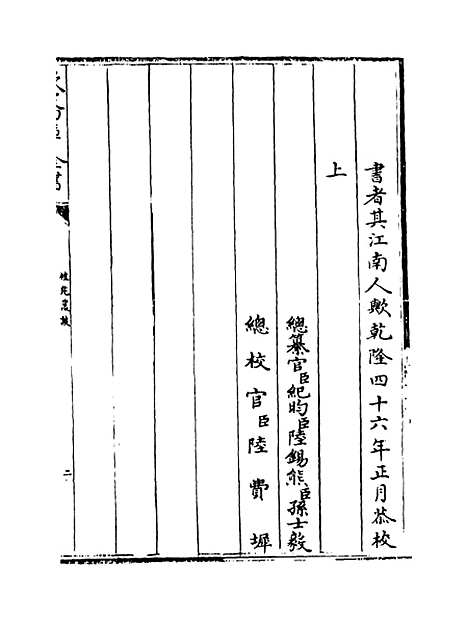 書者其江南人歟乾隆四十六年正月恭校
上
總纂官臣紀昀臣陸錫熊臣孫士毅
總校官臣陸費墀
二